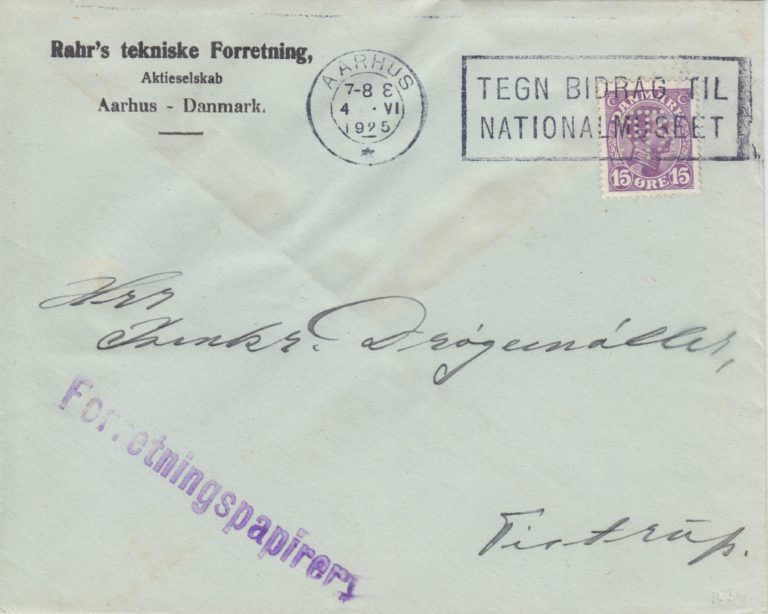 Rahr's tekniske Forretning,
Aktieselskab
Aarhus - Danmark.
AARHUS
7-8 E
4 VI
1925
TEGN BIDRAG TIL
NATIONALMUSEET
DANMARK
15 ØRE 15
Hrr
Drøgemüller,
Forretningspapirer
Tistrup.